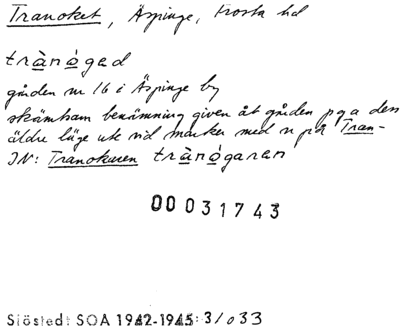 Tranoket, Äspinge, Frosta hd
trànógad
gården nr 16 i Äspinge by
skämtsam benämning given åt gården pga dess
äldre läge ute vid marker med n på Tran-
IN: Tranokaren trànógaren
00031743
Sjöstedt SOA 1942-1945: 3/033